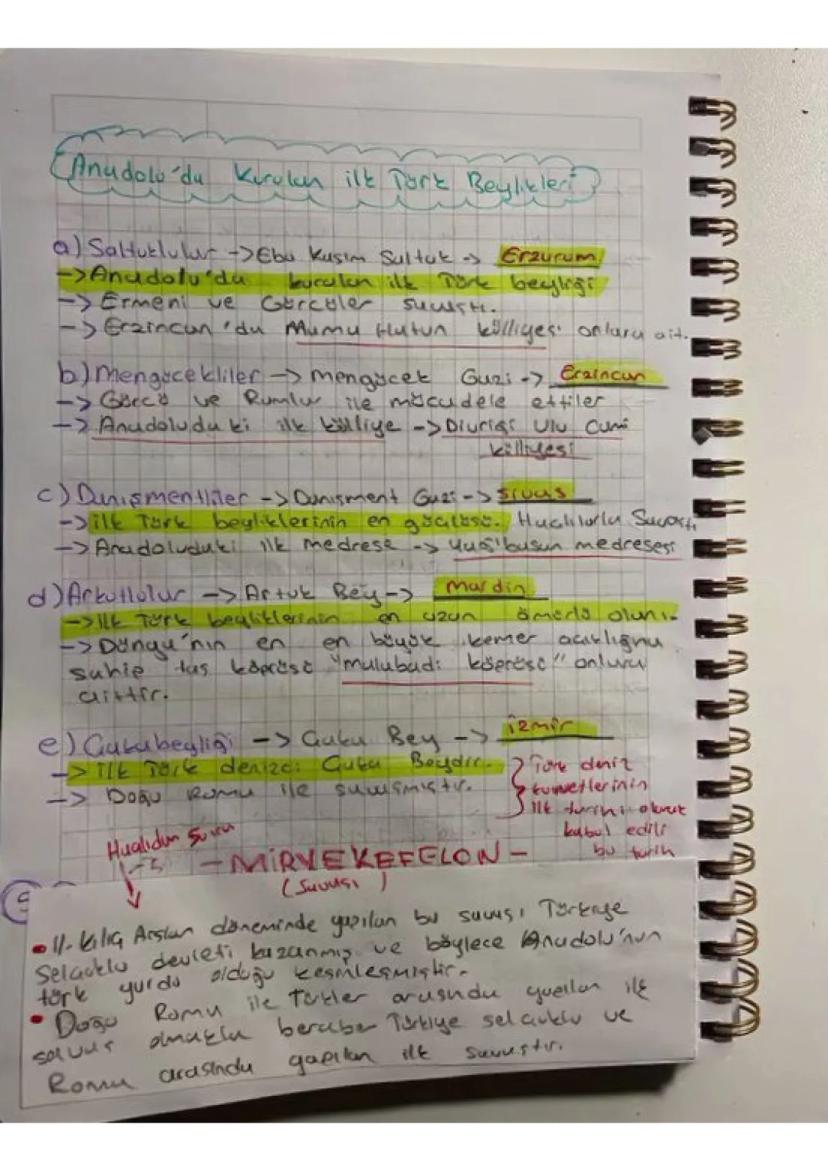 Anadolu'da Kurulan ilk Türk Beylikleri
a) Saltuklular -> Ebu Kasım Saltuk -> Erzurum
-> Anadolu'da kurulan ilk Türk beyliği
-> Ermeni ve Gürcüler savaştı.
-> Erzincan'da Mama Hatun külliyesi onlara ait.
b) Mengücekliler -> mengücek Gazi -> Erzincan
-> Gürcü ve Rumlar ile mücadele ettiler
-> Anadoludaki ilk külliye -> Divriği Ulu Cami
külliyesi
c) Danişmentliler -> Danişment Gazi -> sivas
-> ilk Türk beyliklerinin en güçlüsü. Haçlılarla Savaştı
-> Anadoludaki ilk medrese -> Yağıbasan medresesi
d) Artuklular -> Artuk Bey -> mardin
-> ilk Türk beyliklerinin en uzun ömürlü olanı.
-> Dünya'nın en en büyük kemer açıklığına
sahip taş köprüsü "malabadi köprüsü" onlara
aittir.
e) Çakabeyliği -> Çaka Bey -> izmir
-> ilk Türk denizci Çaka Beydir.
-> Doğu Roma ile savaşmıştır.
Türk deniz
kuvvetlerinin
ilk tarihi olarak
kabul edili
bu tarih
Haçlıdan Sonra
- MİRYEKEFELON -
(Savaşı)
• II. Kılıç Arslan döneminde yapılan bu savaşı Türkiye
Selçuklu devleti kazanmış ve böylece Anadolu'nun
türk yurdu olduğu kesinleşmiştir.
• Doğu Roma ile Türkler arasında yapılan ilk
savunma olmakla beraber Türkiye selçuklu ve
Roma arasında yapılan ilk savaştır.